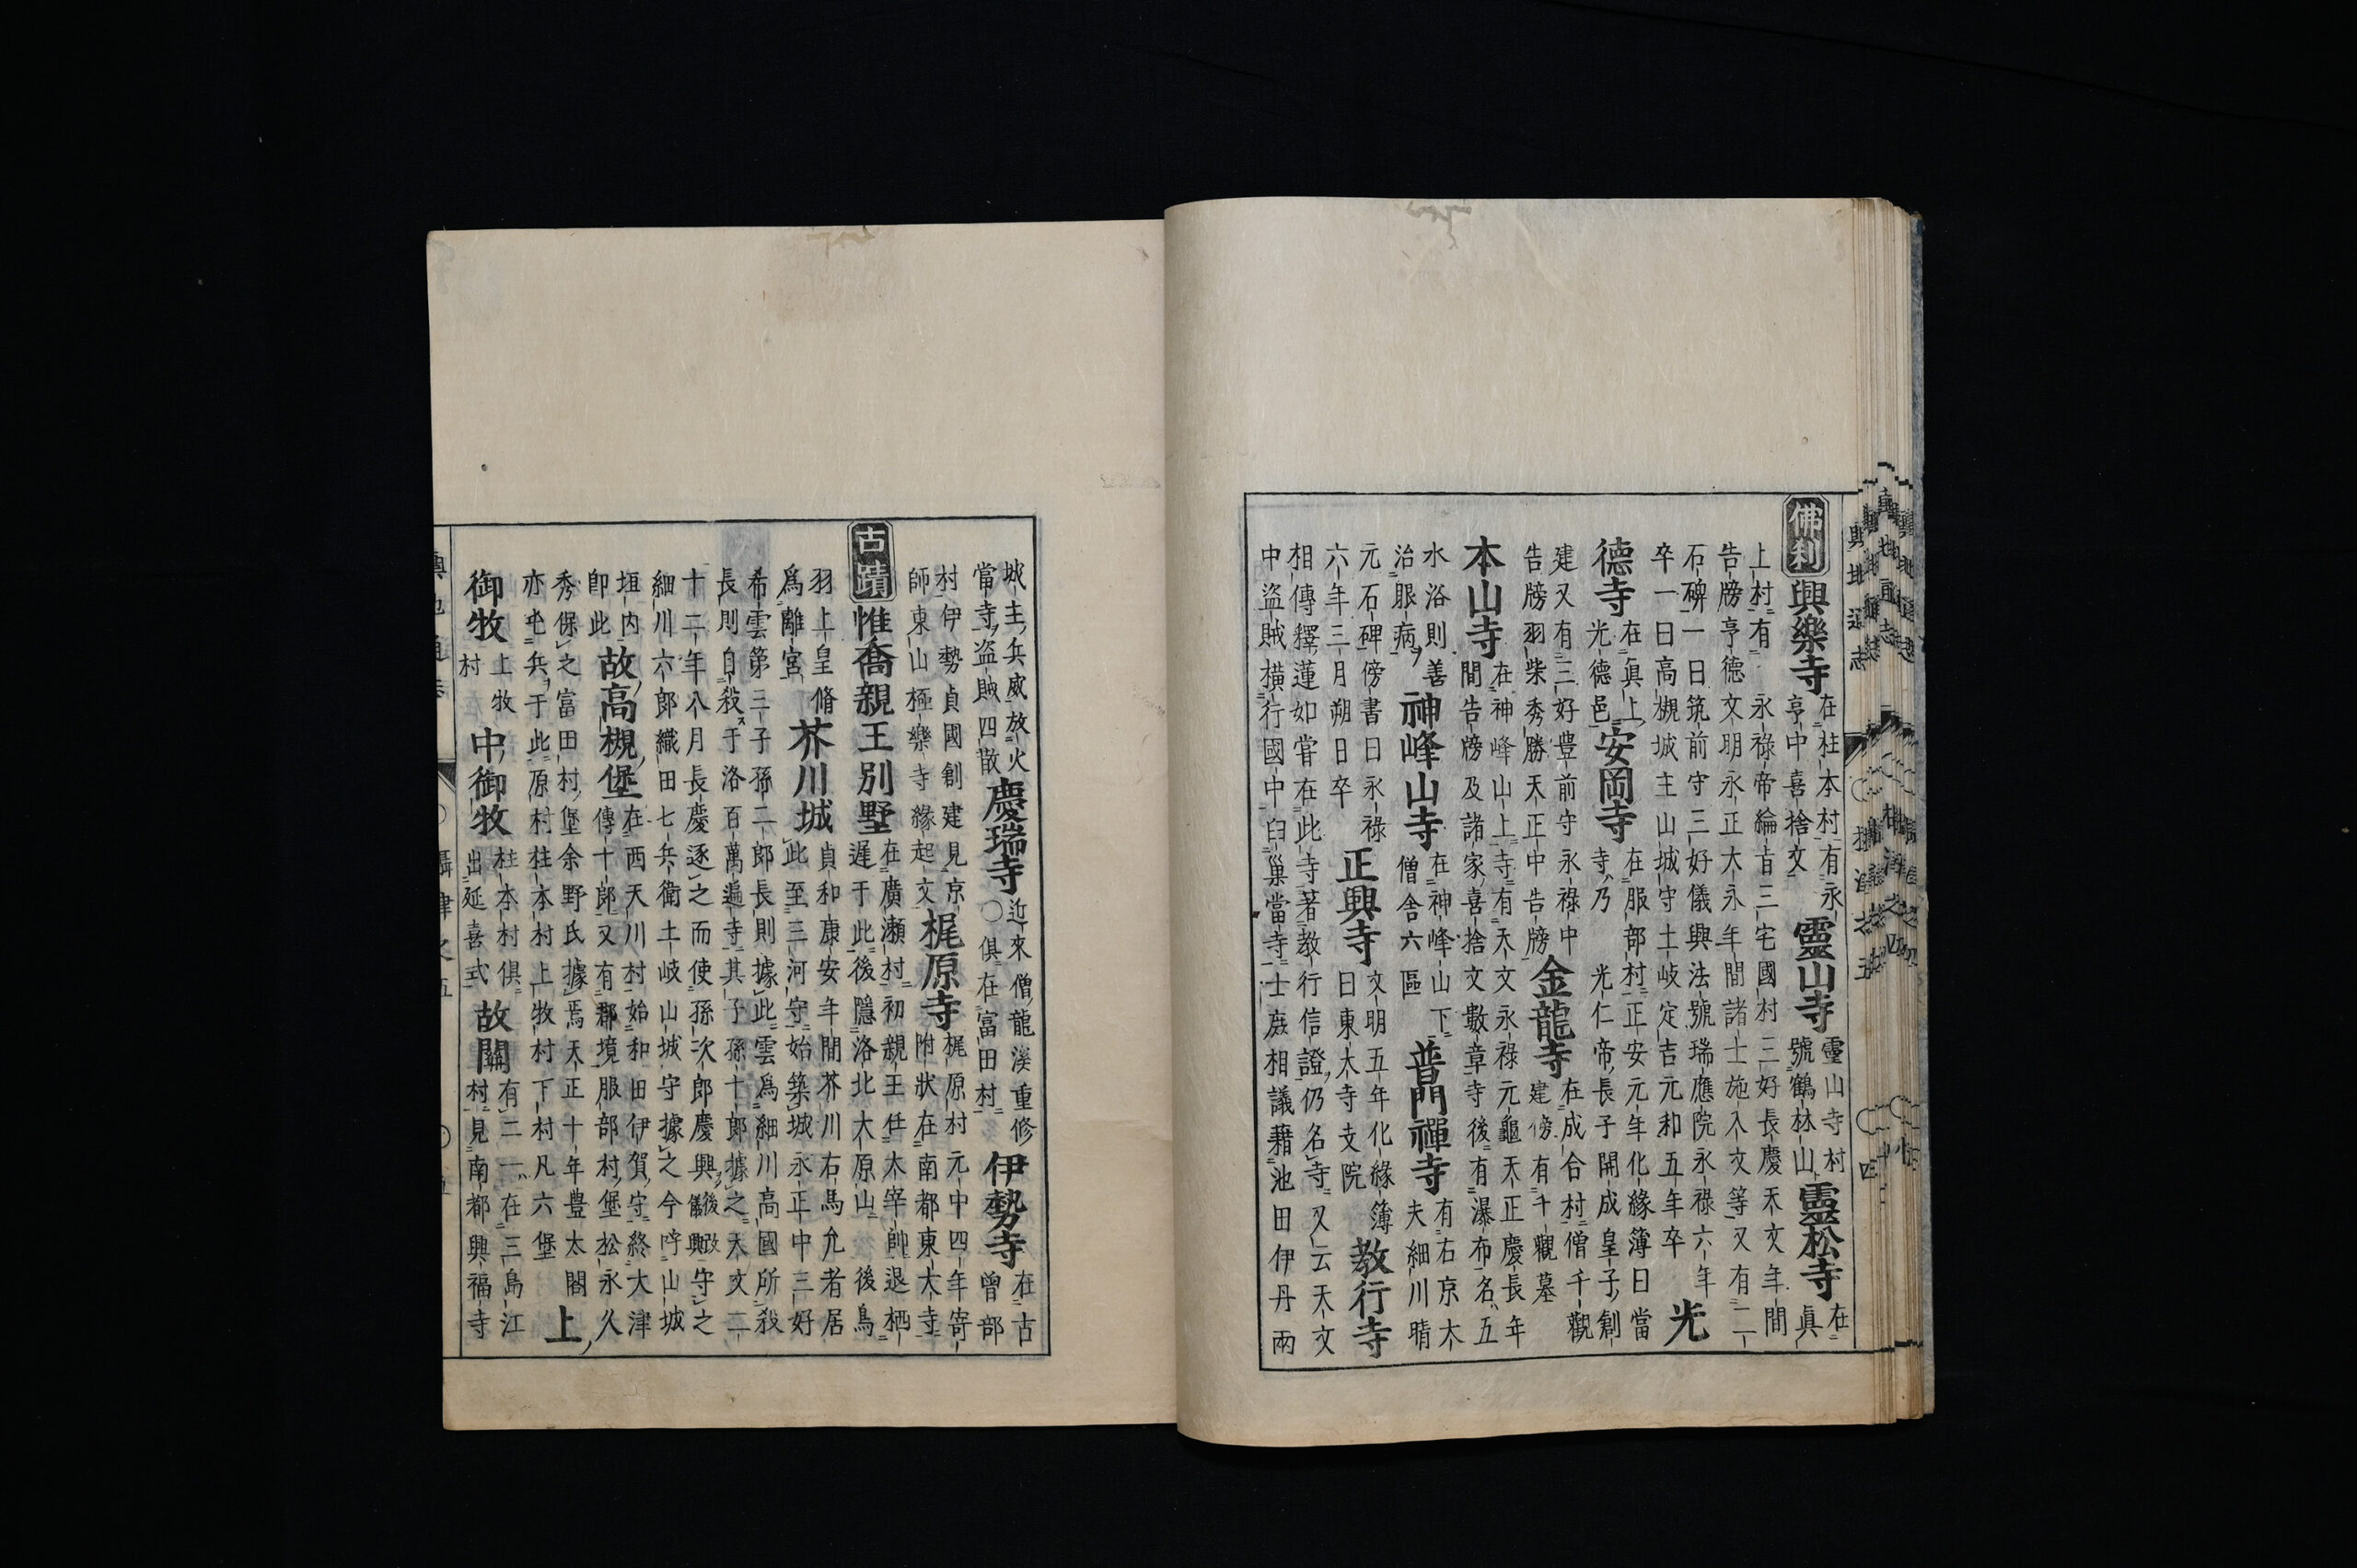 佛刹 興樂寺 在柱本村有永
亨中喜捨文 靈山寺 靈山寺村
號鶴林山 靈松寺 在
眞
上村有 永祿帝綸旨三宅國村三好長慶天文年間
告牓亨德文明永正大永年間諸士施入文等又有二
石碑一曰筑前守三好儀興法號瑞應院永祿六年
卒一曰高槻城主山城守土岐定吉元和五年卒 光
德寺 在眞上
光德邑 安岡寺 在服部村正安元年化緣簿曰當
寺乃 光仁帝長子開成皇子創
建又有三好豊前守永祿中
告牓羽柴秀勝天正中告牓 金龍寺 在成合村僧千觀
建傍有千觀墓
本山寺 在神峰山上寺有天文永祿元龜天正慶長年
間告牓及諸家喜捨文數章寺後有瀑布名五
水浴則善
治眼病 神峰山寺 在神峰山下
僧舍六區 普門禪寺 有右京大
夫細川晴
元石碑傍書曰永祿
六年三月朔日卒 正興寺 文明五年化緣簿
曰東大寺支院 教行寺
相傳釋蓮如嘗在此寺著教行信證仍名寺又云天文
中盜賊横行國中臼巢當寺士庶相議藉池田伊丹兩
城主兵威放火
當寺盜賊四散 慶瑞寺 近來僧龍溪重修
○俱在富田村 伊勢寺 在古
曾部
村伊勢貞國創建見京
師東山極樂寺緣起文 梶原寺 梶原村元中四年寄
附狀在南都東大寺
古蹟 惟喬親王別墅 在廣瀬村初親王任太宰帥退栖
遲于此後隱洛北大原山 後鳥
羽上皇脩
爲離宮 芥川城 貞和康安年間芥川右馬允者居
此至三河守始築城永正中三好
希雲第三子孫二郎長則據此雲爲細川高國所殺
長則自殺于洛百萬遍寺其子孫十郎據之天文二
十二年八月長慶逐之而使孫次郎慶興後改義興守之
細川六郎織田七兵衛土岐山城守據之今呼山城
垣内
卽此 故高槻堡 在西天川村始和田伊賀守終大津
傳十郎又有郡境服部村堡松永久
秀保之富田村堡余野氏據焉天正十年豊太閤
亦屯兵于此原村柱本村上牧村下村凡六堡 上
御牧 上牧
村 中御牧 柱本村俱
出延喜式 故關 有二一在三島江
村見南都興福寺